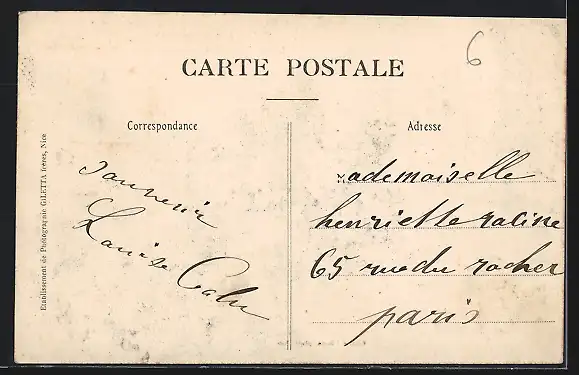 6
CARTE POSTALE
Correspondance
Adresse
Etablissement de Photographie GILETTA frères, Nice
Souvenir
Louise
Mademoiselle
henriette racine
65 rue du rocher
paris